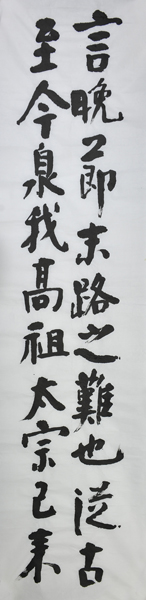 言晚節末路之難也從古
至今泉我高祖太宗已来